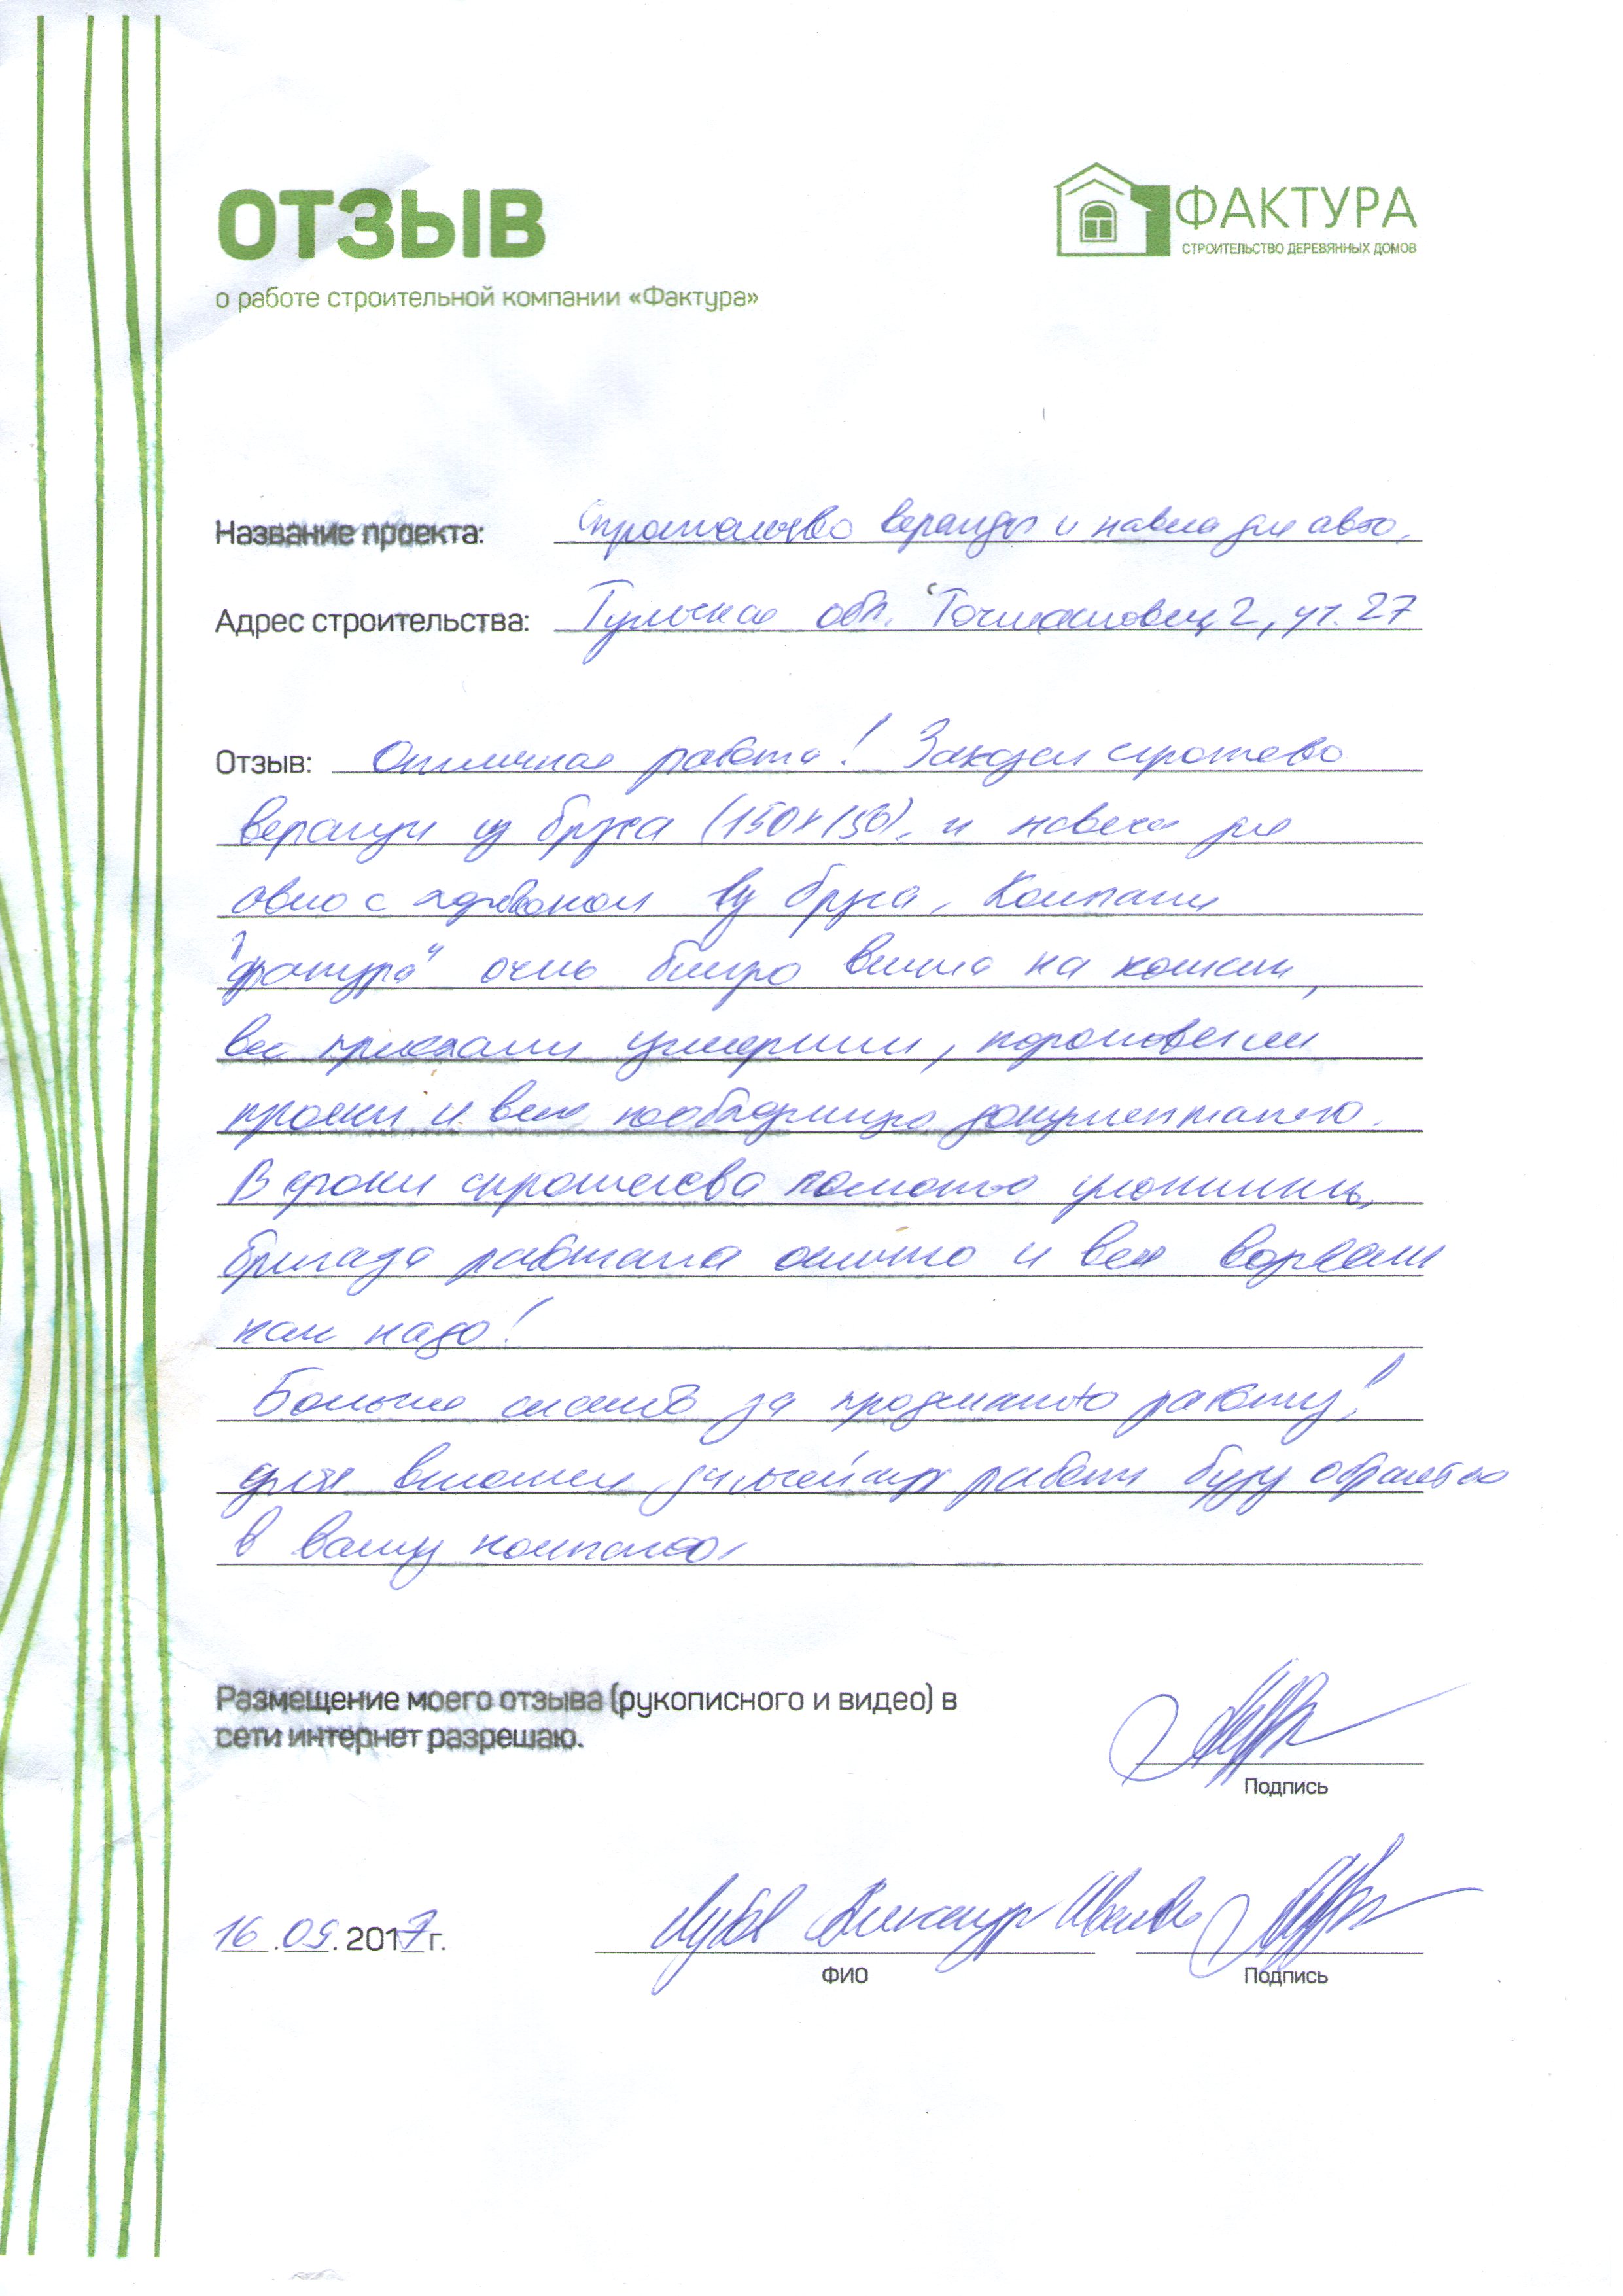 ОТЗЫВ
ФАКТУРА
СТРОИТЕЛЬСТВО ДЕРЕВЯННЫХ ДОМОВ
о работе строительной компании «Фактура»
Название проекта: Строительство веранды и навеса для авто.
Адрес строительства: Тульская обл. 2, уч. 27
Отзыв: Отличная работа! Заказал строительство
веранды из бруса (150х150). и навеса для
авто с из бруса. Компания
"Фактура" очень быстро вышла на контакт,
все приехали измерили, подготовили
проект и всю необходимую документацию.
В сроки строительства полностью уложились,
бригада работала отлично и все
как надо!
Большое спасибо за проделанную работу!
для дальнейших работ буду обращаться
в вашу компанию.
Размещение моего отзыва (рукописного и видео) в
сети интернет разрешаю.
Подпись
16.09.2017г. Александр
ФИО
Подпись